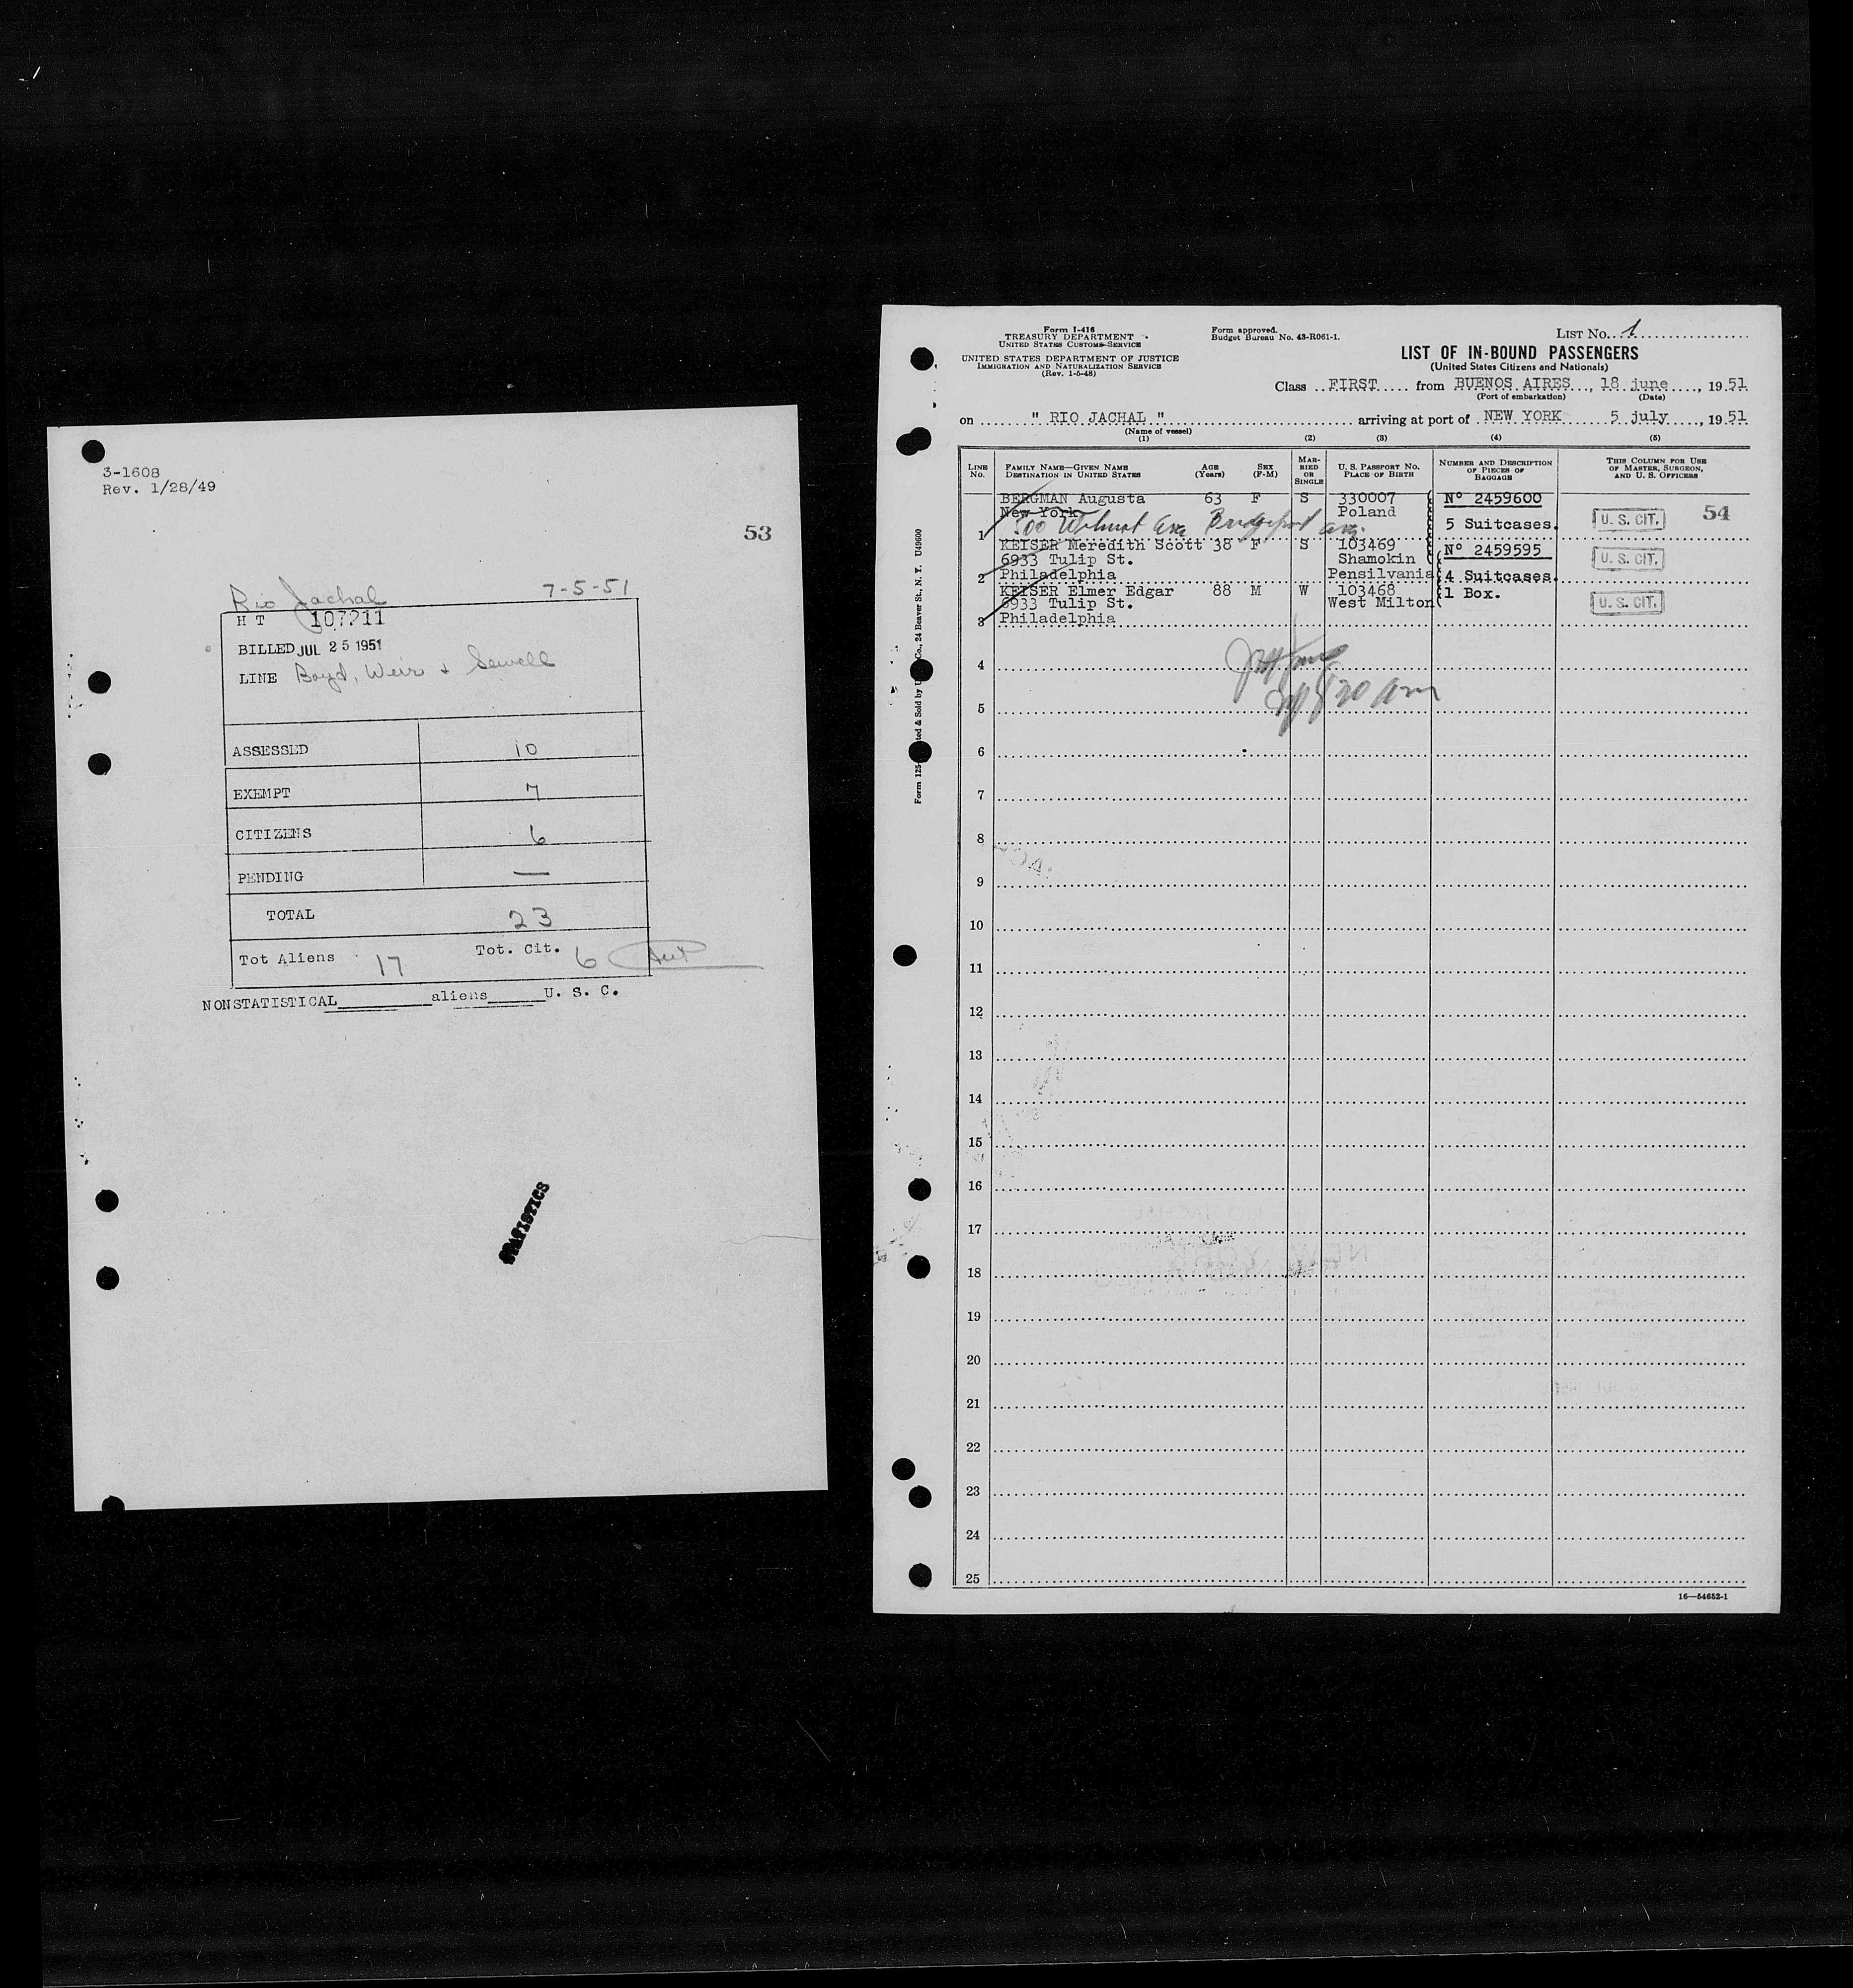 3-1608
Rev. 1/28/49
53
Rio Jachal 7-5-51
H T 107211
BILLED JUL 25 1951
LINE Boyd, Weir & Sewell
ASSESSED 10
EXEMPT 7
CITIZENS 6
PENDING —
TOTAL 23
Tot Aliens 17 Tot. Cit. 6
NONSTATISTICAL aliens U. S. C.
STATISTICS
Form I-416
TREASURY DEPARTMENT
UNITED STATES CUSTOMS SERVICE
UNITED STATES DEPARTMENT OF JUSTICE
IMMIGRATION AND NATURALIZATION SERVICE
(Rev. 1-5-48)
Form approved.
Budget Bureau No. 43-R061-1.
LIST No. 1
LIST OF IN-BOUND PASSENGERS
(United States Citizens and Nationals)
Class FIRST from BUENOS AIRES, 18 june, 1951
(Port of embarkation) (Date)
on " RIO JACHAL " arriving at port of NEW YORK 5 july, 1951
(Name of vessel)
(1) (2) (3) (4) (5)
LINE No. FAMILY NAME—GIVEN NAME DESTINATION IN UNITED STATES AGE (Years) SEX (F-M) MARRIED OR SINGLE U. S. PASSPORT No. PLACE OF BIRTH NUMBER AND DESCRIPTION OF PIECES OF BAGGAGE THIS COLUMN FOR USE OF MASTER, SURGEON, AND U. S. OFFICERS
BERGMAN Augusta 63 F S 330007 Nº 2459600
New York Poland 54
1 500 Walnut Ave Bridgeport 5 Suitcases. U. S. CIT.
KEISER Meredith Scott 38 F S 103469 Nº 2459595
6933 Tulip St. Shamokin U. S. CIT.
2 Philadelphia Pensilvania 4 Suitcases.
KEISER Elmer Edgar 88 M W 103468 1 Box.
6933 Tulip St. West Milton U. S. CIT.
3 Philadelphia
4
5
6
7
8
9
10
11
12
13
14
15
16
17
18
19
20
21
22
23
24
25
16—54652-1
Co., 24 Beaver St., N. Y. U49600